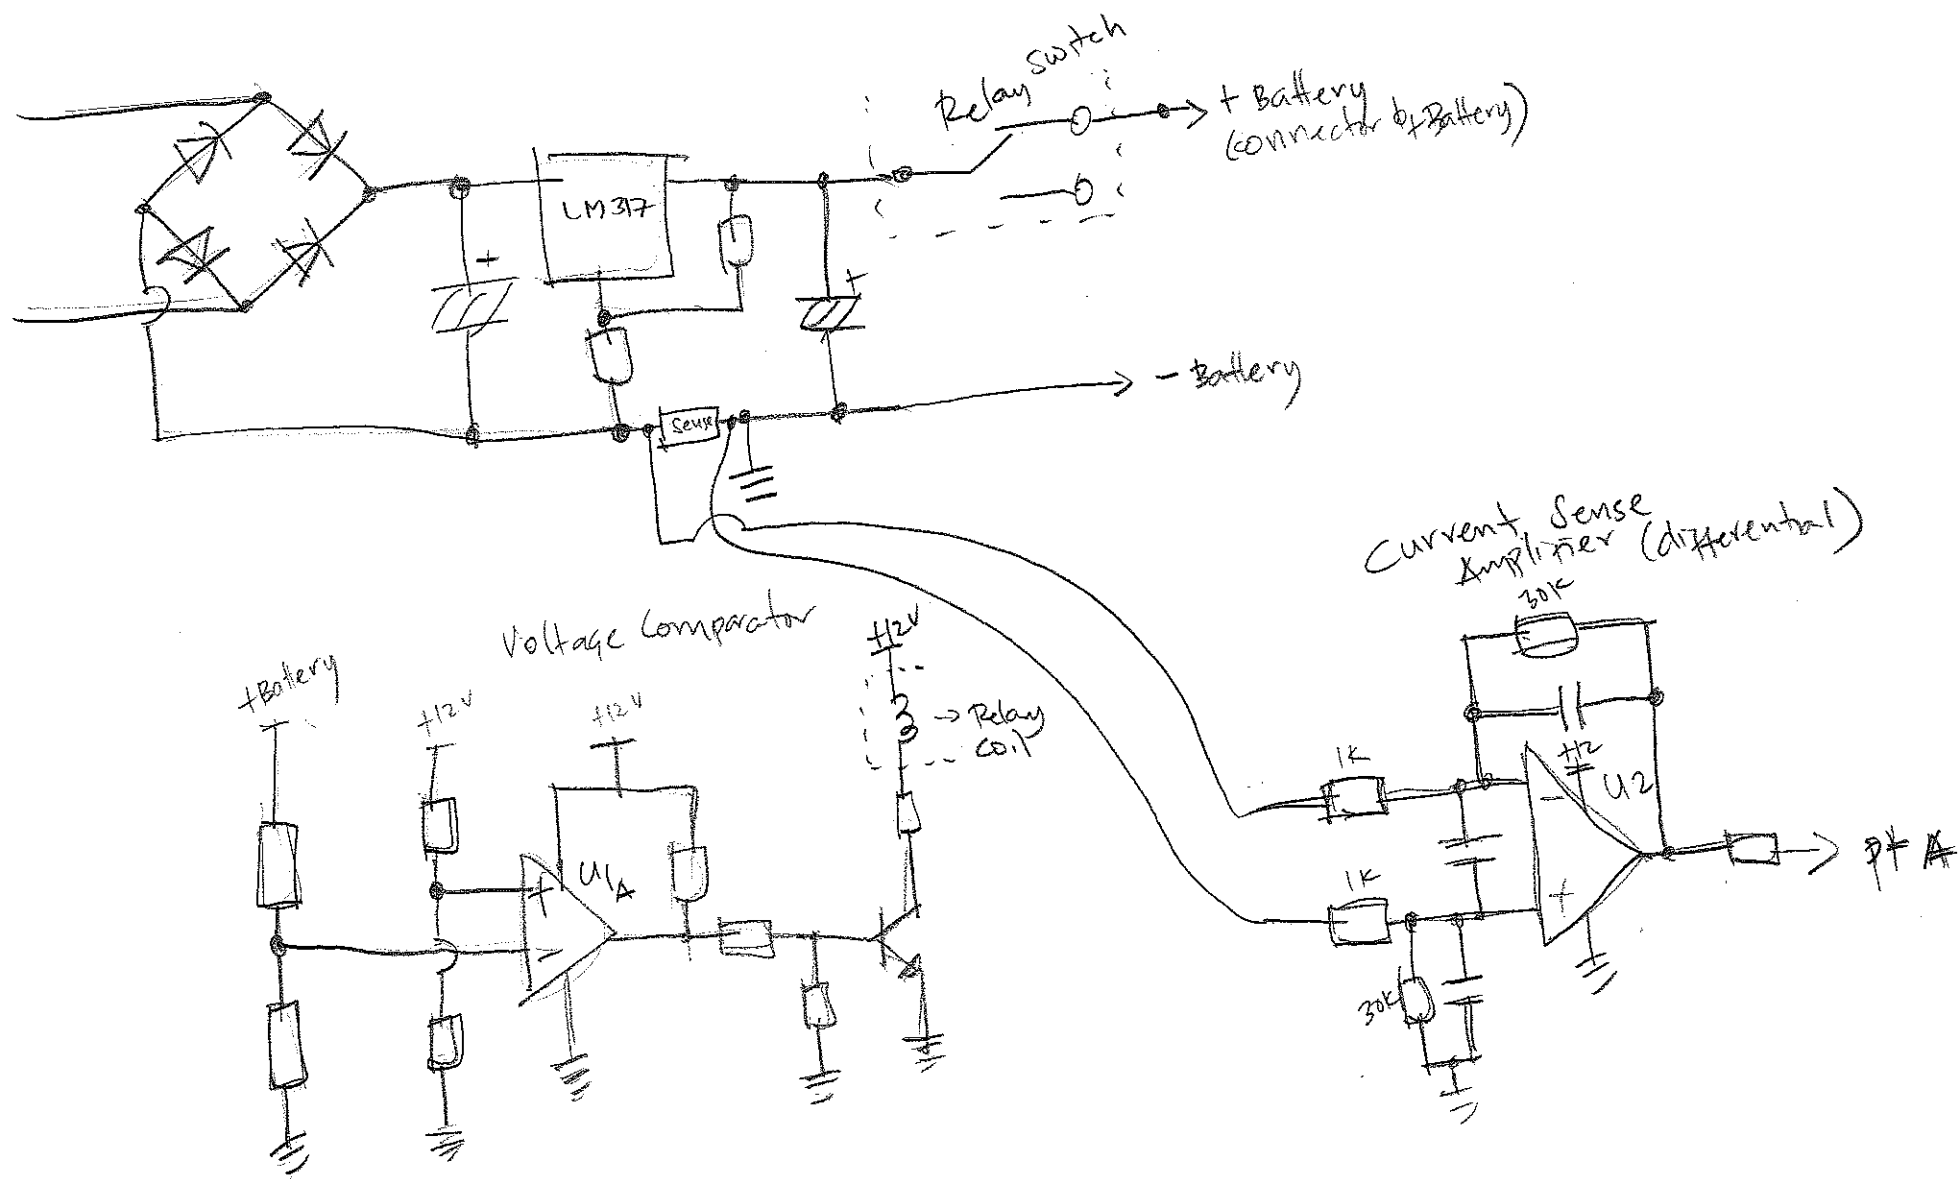 Relay switch
+ Battery
(connector to +Battery)
LM317
+
+
- Battery
Sense
Current Sense
Amplifier (differential)
30K
Voltage Comparator
+12V
+Battery
+12V
+12V
→ Relay
coil
1K
+12
U2
-
+
U1A
+
-
pt A
1K
30K